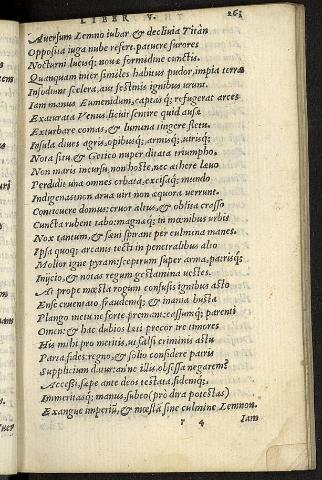 LIBER V. 263
Aversum Lemno iubar, & declivia Titan
Opposita iuga nube refert. patuere furores
Nocturni lucisq; novæ formidine cunctis,
Quamquam inter similes habitus pudor. impia terræ
Infodiunt scelera, aut festinis ignibus urunt.
Iam manus Eumenidum, captasq; refugerat arces
Exaturata Venus. licuit sentire quid ausæ
Et turbare comas, & lumina tingere fletu.
Insula dives agris, opibusq;, armisq;, virisq;
Nota situ, & Getico nuper ditata triumpho,
Non maris incursu, non hoste, nec æthere lævo
Perdidit una omnes orbata, excisaq; mundo
Indigenas. non arva viri non æquora verrunt.
Conticuere domus: cruor altus, & oblita crasso
Cuncta rubent tabo: magnaq; in mœnibus urbis
Nox tantum, & sævi spirant per culmina manes.
Ipsa quoq; arcanis tecti in penetralibus alto
Molior igne pyram: sceptrum super arma, patrisq;
Iniicio, & notas regum gestamina vestes.
At prope mœsta rogum confusis ignibus asto
Ense cruentato, fraudemq; & inania busta
Plango metu, ne forte premant: cassumq; parenti
Omen: & hac dubios leti precor ire timores
His mihi pro meritis, ut falsi criminis astu
Parta fides: regna, & solio considere patris
Supplicium datur. an ne illis obsessa negarem?
Accessi, sæpe ante deos testata, fidemq;,
Immeritasq; manus. subeo (prò dira potestas)
Exangue imperiũ, & mœstã sine culmine Lemnon.
r 4 Iam